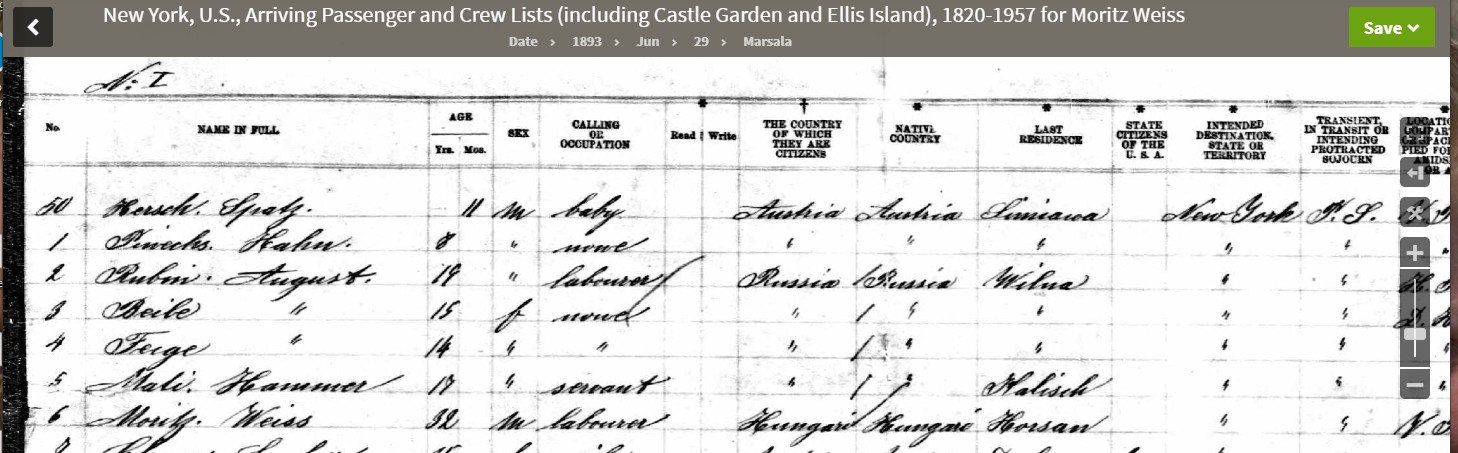 New York, U.S., Arriving Passenger and Crew Lists (including Castle Garden and Ellis Island), 1820-1957 for Moritz Weiss
Date > 1893 > Jun > 29 > Marsala
Save
No: I
No. NAME IN FULL AGE Yrs. Mos. SEX CALLING OR OCCUPATION Read Write THE COUNTRY OF WHICH THEY ARE CITIZENS NATIVE COUNTRY LAST RESIDENCE STATE CITIZENS OF THE U. S. A. INTENDED DESTINATION, STATE OR TERRITORY TRANSIENT, IN TRANSIT OR INTENDING PROTRACTED SOJOURN
50 Hersch. Spatz. 11 m baby Austria Austria Siniawa New York P. S.
1 Pinechs. Hahn. 8 " none " " " " "
2 Rubin. August. 19 " labourer Russia Russia Wilna " "
3 Beile " 15 f none " " " " "
4 Feige " 14 " " " " " " "
5 Mali. Hammer 17 " servant " " Kalisch " "
6 Moritz. Weiss 32 m labourer Hungari Hungari Horsan " "